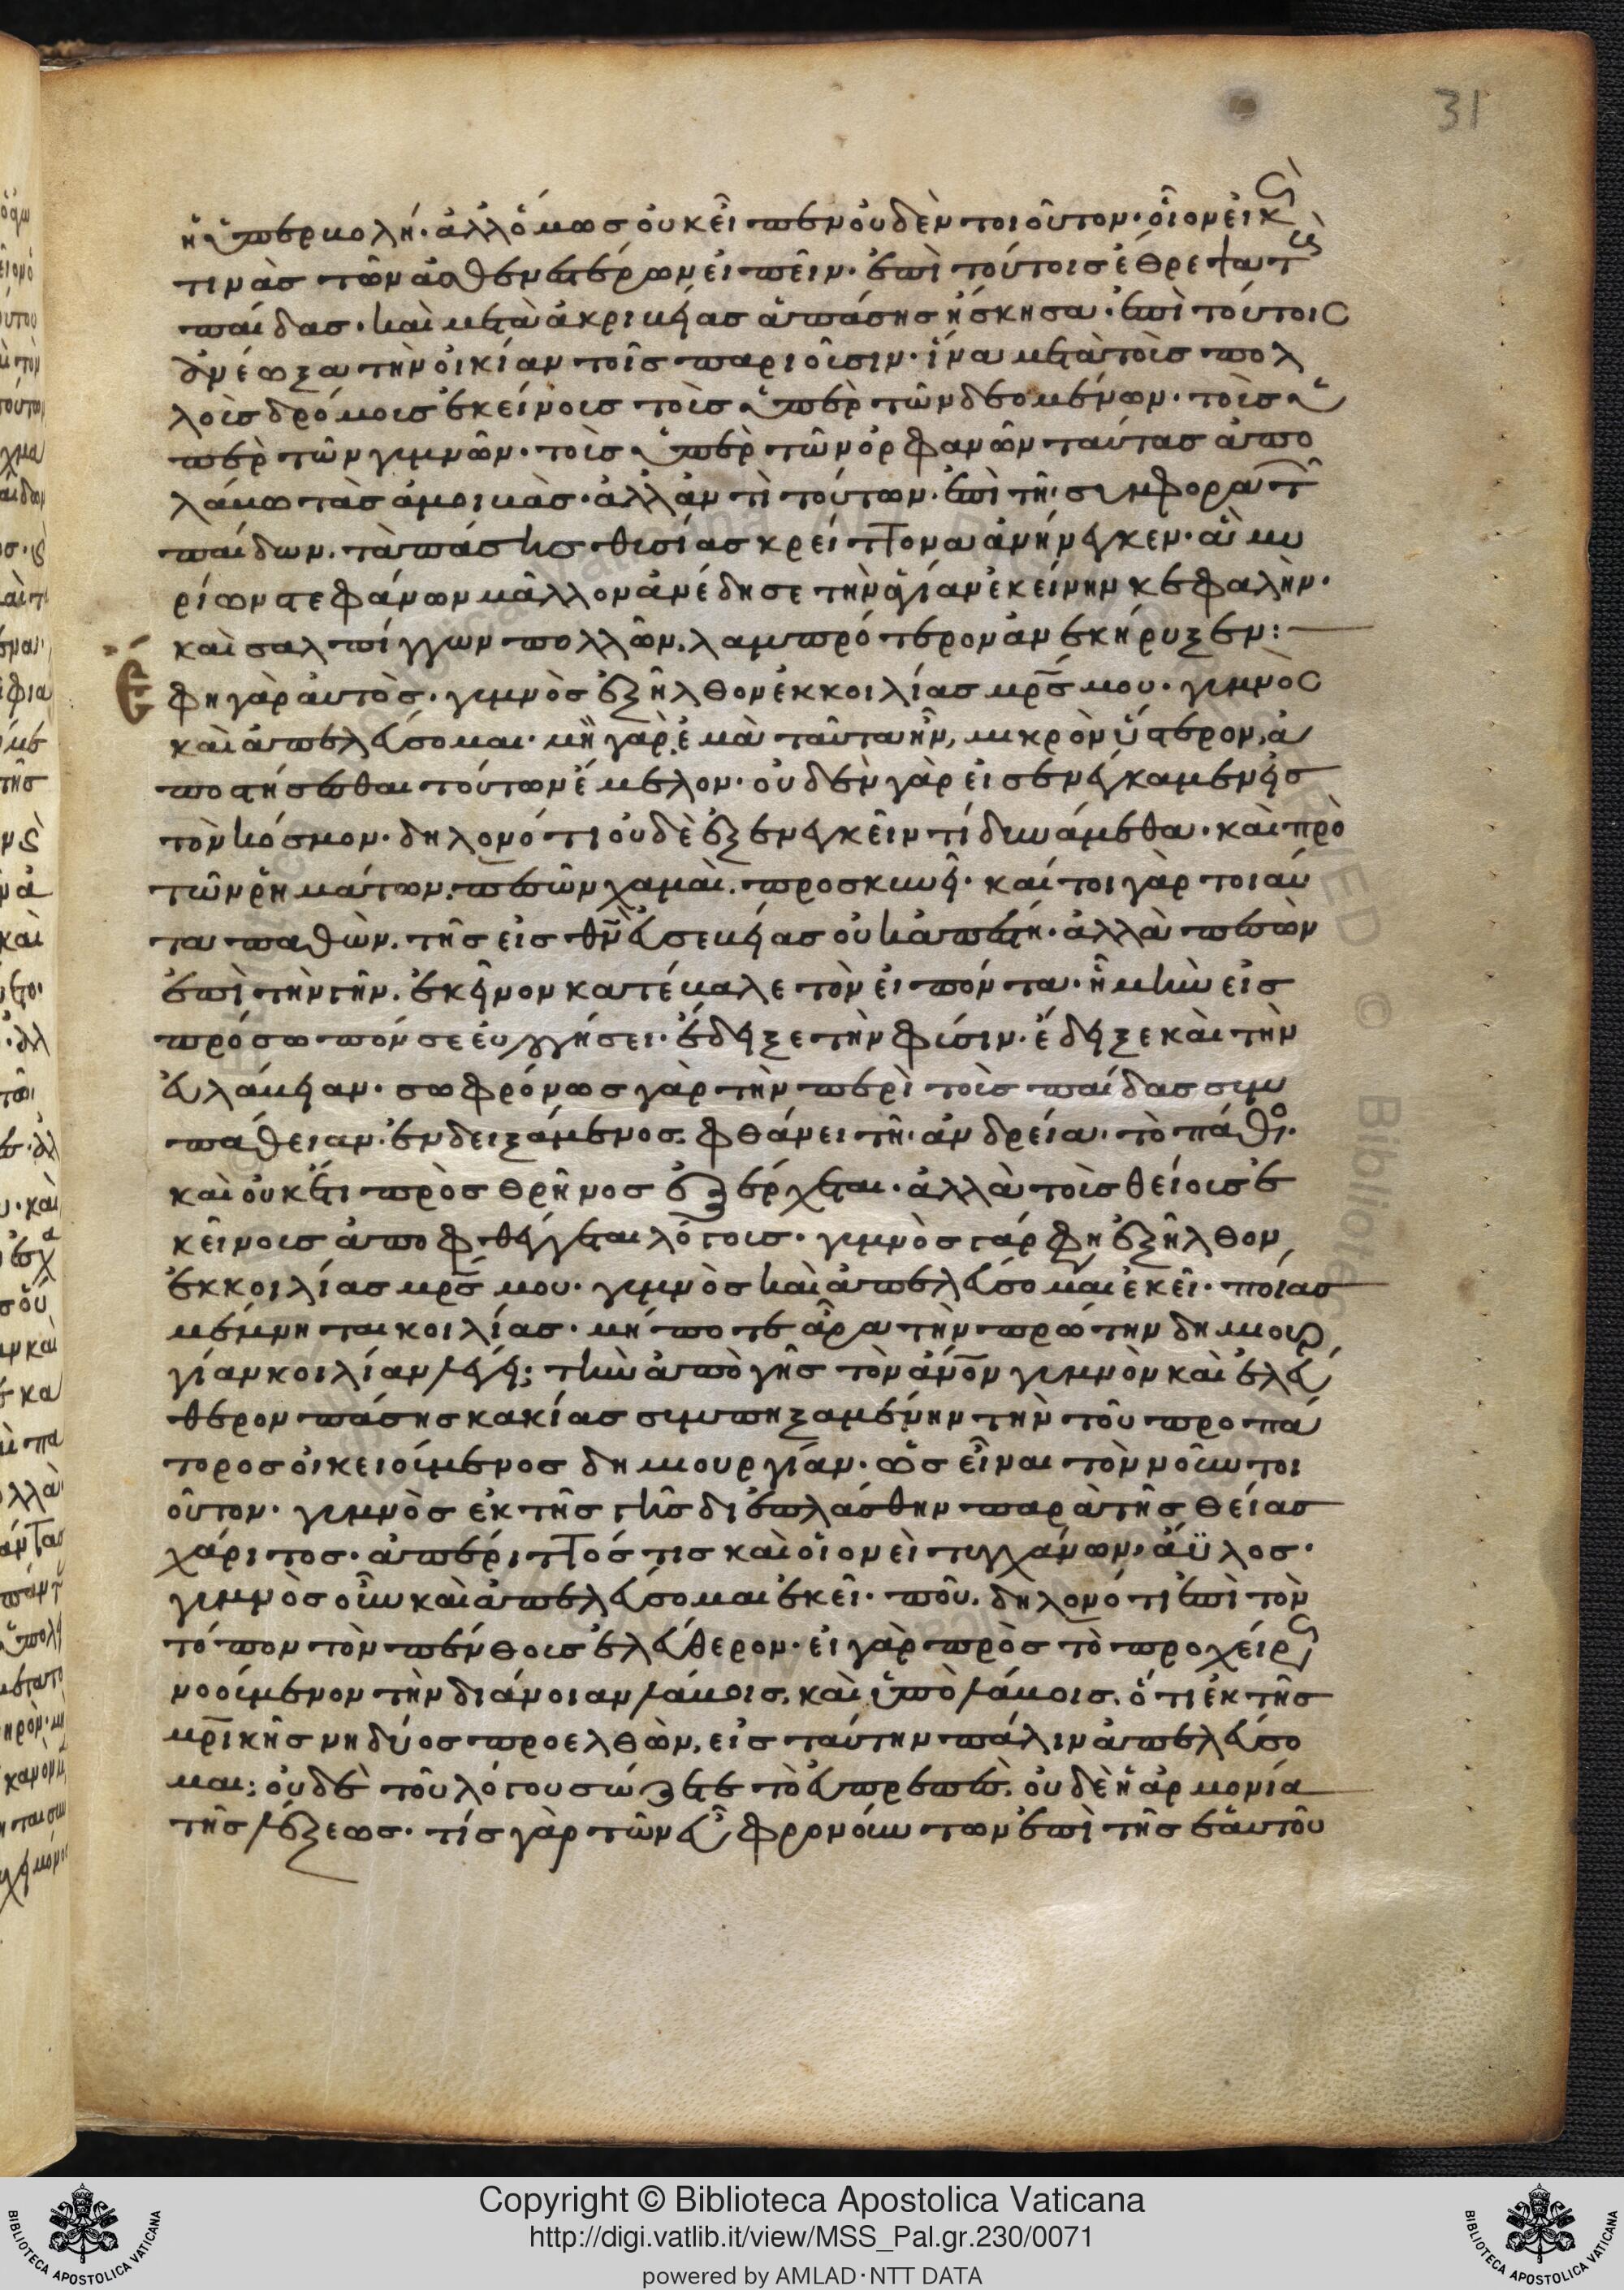 31
ἡ ὑπερβολή· ἀλλ ὅμως οὐκ εἶπεν οὐδὲν τοιοῦτον· οἷον εἰκὸς
τινὰς τῶν ἀσθενεστέρων εἰπεῖν· ἐπὶ τούτοις ἔθρεψα τοὺς
παίδας· καὶ μετὰ ἀκριβείας ἁπάσης ἤσκησα· ἐπὶ τούτοις
ἀνέωξα τὴν οἰκίαν τοῖς παριοῦσιν· ἵνα μετὰ τοὺς πολ
λοὺς δρόμους ἐκείνους τοὺς ὑπὲρ τῶν δεομένων· τοὺς ὑ
πὲρ τῶν γυμνῶν· τοὺς ὑπὲρ τῶν ὀρφανῶν ταύτας ἀπο
λάβω τὰς ἀμοιβὰς· ἀλλ ἀντὶ τούτων· ἐπὶ τῆ συμφορα τῶν
παίδων. τὰ πάσης θυσίας κρείττονα ἀνήνεγκεν· ἃ μυ
ρίων στεφάνων μᾶλλον ἀνέδησε τὴν ἁγίαν ἐκείνην κεφαλὴν·
καὶ σαλπίγγων πολλῶν, λαμπρότερον ἀνεκήρυξεν:
Ἔφη γὰρ αὐτὸς· γυμνὸς ἐξῆλθον ἐκ κοιλίας μρς μου· γυμνὸς
καὶ ἀπελεύσομαι· μὴ γὰρ ἐμὰ ταῦτα ἦν, μικρὸν ὕστερον, ἀ
ποστήσεσθαι τούτων ἔμελον· οὐδὲν γὰρ εἰσενεγκαμεν εἰς
τὸν κόσμον· δηλονότι οὐδὲ ἐξενεγκεῖν τί δυνάμεθα· καὶ πρὸ
τῶν ῥημάτων, πεσὼν χαμαὶ. προσκυνεῖ· καί τοι γὰρ τοιαύ
τα παθὼν. τῆς εἰς θν εὐσεβείας οὐκ ἀπέστη· ἀλλὰ πεσὼν
ἐπὶ τὴν γῆν. ἐκεῖνον κατέβαλε τὸν εἰπόντα· ἦ μὴν εἰς
πρόσωπόν σε εὐλογήσει· ἔδειξε τὴν φύσιν· ἔδειξε καὶ τὴν
εὐλάβειαν· σωφρόνως γὰρ τὴν περὶ τοὺς παίδας συμ
πάθειαν. ἐνδειξάμενος. φθάνει τῆ ἀνδρεία· τὸ πάθος·
καὶ οὐκέτι πρὸς θρῆνος ἐξέρχεται· ἀλλὰ τοὺς θείους ἐ
κεῖνους ἀποφθέγγεται λόγους· γυμνὸς γάρ φη ἐξῆλθον
ἐκ κοιλίας μρς μου· γυμνὸς καὶ ἀπελεύσομαι ἐκεῖ· ποίας
μέμνηται κοιλίας· μή ποτε ἆρα τὴν πρώτην δημιουρ
γίαν κοιλίαν λέγει; τὴν ἀπὸ γῆς τὸν ἀνον γυμνὸν καὶ ἐλεύ
θερον πάσης κακίας συμπηξαμένην τὴν τοῦ προπά
τορος οἰκειούμενος δημιουργίαν· ὡς εἶναι τὸν νοῦν τοι
οῦτον· γυμνὸς ἐκ τῆς γῆς διεπλάσθην παρὰ τῆς θείας
χάριτος· ἀπέριττός τις καὶ οἱονεὶ τυγχάνων, ἄϋλος·
γυμνὸς οὖν καὶ ἀπελεύσομαι ἐκεῖ· ποῦ, δηλονότι ἐπὶ τὸν
τόπον τὸν πένθους ἐλεύθερον· εἰ γὰρ πρὸς τὸ προχείρως
νοούμενον τὴν διάνοιαν λάβοις, καὶ ὑπολάβοις, ὅτι ἐκ τῆς
μρικῆς νηδύος προελθὼν, εἰς ταύτην πάλιν ἀπελεύσο
μαι; οὐδὲ τοῦ λόγου σώζεται τὸ εὐπρεπὲς. οὐδὲ ἡ ἁρμονία
τῆς λέξεως· τίς γὰρ τῶν εὖ φρονούντων ἐπὶ τῆς ἑαυτοῦ
Copyright © Biblioteca Apostolica Vaticana
http://digi.vatlib.it/view/MSS_Pal.gr.230/0071
powered by AMLAD·NTT DATA